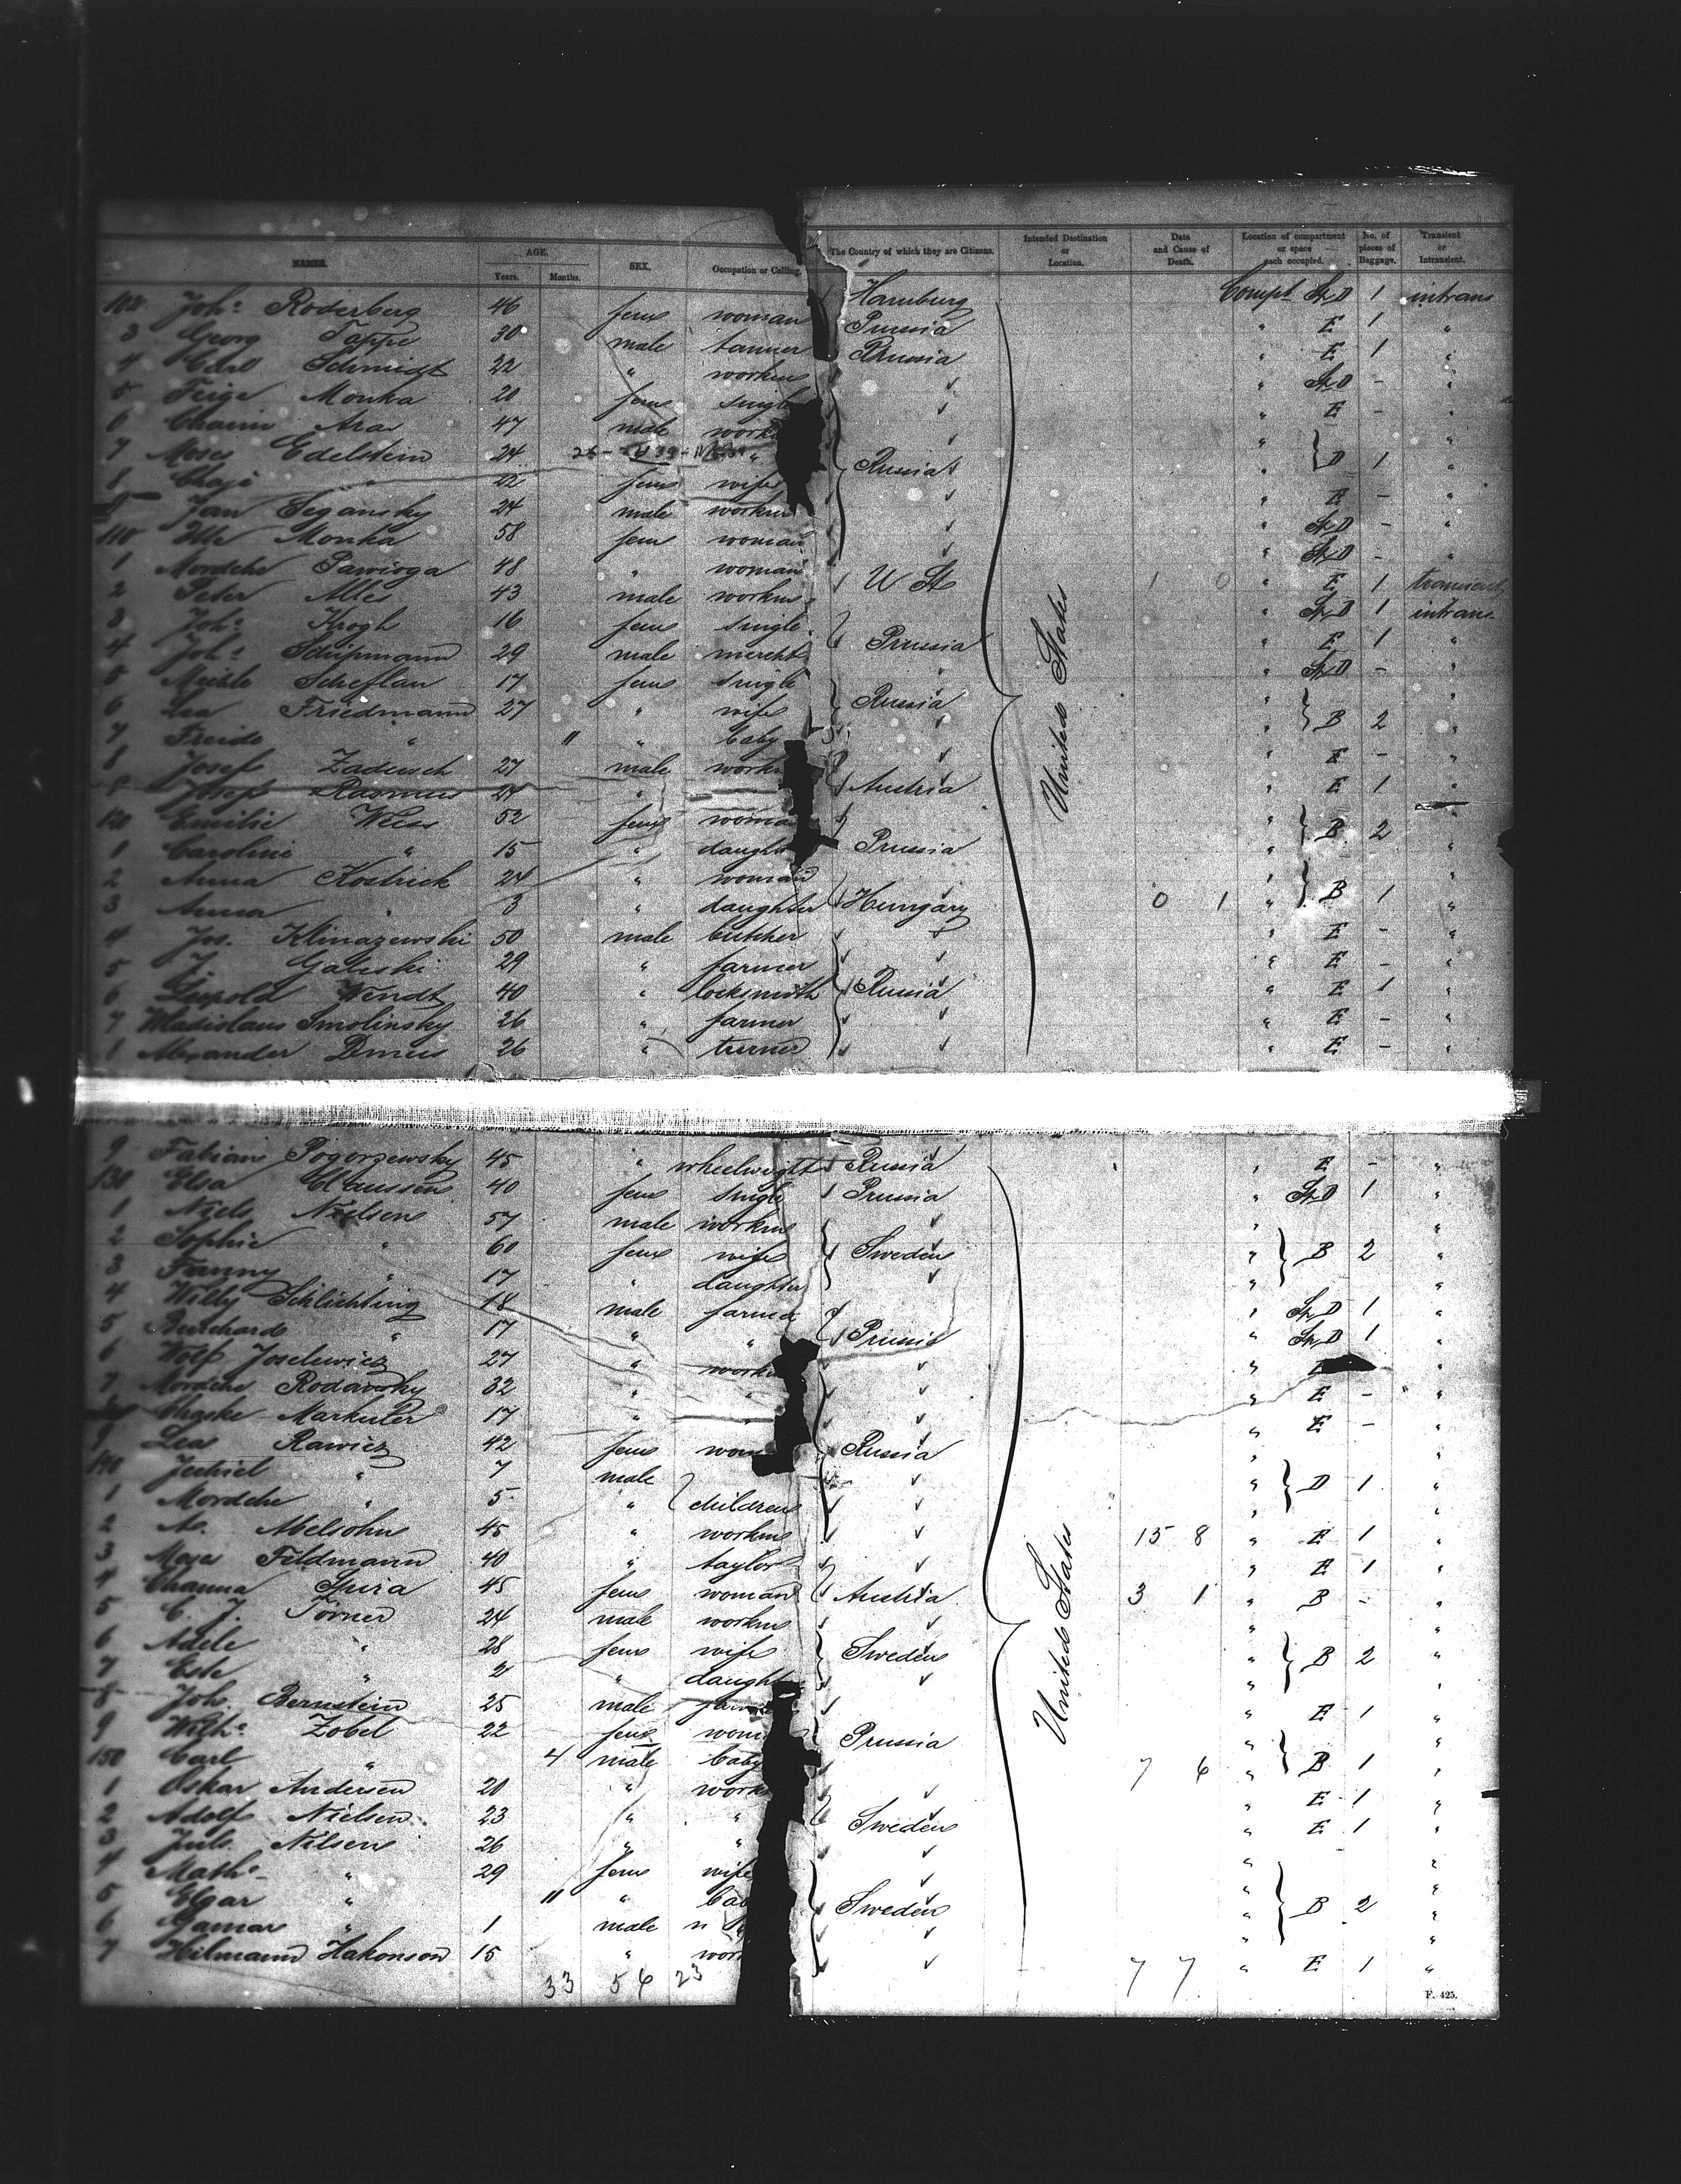 NAMES. AGE. Years. Months. SEX. Occupation or Calling. The Country of which they are Citizens. Intended Destination or Location. Date and Cause of Death. Location of compartment or space each occupied. No. of pieces of Baggage. Transient or Intransient.
102 Joh. Roderberg 46 fem woman Hamburg Compt StD 1 intrans
3 Georg Toppe 30 male tanner Prussia " E 1 "
4 Carl Schmidt 22 " workm Prussia " E 1 "
5 Feige Monka 20 fem single " StD - "
6 Chaim Ara 47 male work " E - "
7 Moses Edelstein 24 " " Russia " D 1 "
8 Chaje " 22 fem wife "
9 Jan Segansky 24 male workm " E - "
110 Monka 58 fem woman " StD - "
1 Mordche Pawioga 48 " woman " StD - "
2 Peter Alles 43 male workm U St 1 0 " E 1 transient
3 Joh. Krogh 16 fem single " StD 1 intrans
4 Joh. Schipmann 29 male mercht Prussia " E 1 "
5 Michle Scheflan 17 fem single " StD - "
6 Lea Friedmann 27 " wife Russia " B 2 "
7 Freide " 11 " baby " "
8 Josef Zadeisch 27 male workm " E - "
9 Josef Rasmus 24 " Austria " E 1
120 Emilie Weiss 52 fem woman " B 2 "
1 Caroline " 15 " daught Prussia " "
2 Anna Kostrick 24 " woman " B 1 "
3 Anna " 3 " daughter Hungary 0 1 " "
4 Jos. Klinazewski 50 male butcher " E - "
5 J. Galeski 29 " farmer " E - "
6 Leopold Wendt 40 " locksmith Russia " E 1 "
7 Wladislaus Smolinsky 26 " farmer " E - "
8 Alexander 26 " turner " E - "
United States
9 Fabian Pogorzewsky 45 " wheelwright Russia " E - "
130 Elsa Claussen 40 fem single Prussia " StD 1 "
1 Niels Nielsen 57 male workm "
2 Sophie " 60 fem wife Sweden " B 2 "
3 Fanny " 17 " daughter " "
4 Willy Schlichting 18 male farmer " StD 1 "
5 Burchard " 17 " " Prussia " StD 1 "
6 Wolf Joselewicz 27 " workm " E "
7 Mordche Rodawsky 32 " " " E - "
Markuler 17 " " E - "
9 Lea Rawicz 42 fem wom Russia " "
140 Jechiel " 7 male " D 1 "
1 Mordche " 5 " children " "
2 Ab. Abelsohn 45 " workm 15 8 " E 1 "
3 Moses Feldmann 40 " taylor " E 1 "
4 Channa Spira 45 fem woman Austria 3 1 " B - "
5 C. J. Törner 24 male workm " "
6 Adele " 28 fem wife Sweden " B 2 "
7 " 2 " daught " "
8 Joh. Bernstein 25 male farm " E 1 "
9 Wilh. Zobel 22 fem wom Prussia " "
150 Carl " 4 male baby 7 6 " B 1 "
1 Oskar Andersen 20 " work " E 1 "
2 Adolf Nielsen 23 " " Sweden " E 1 "
3 Juls. Nilsen 26 " " " "
4 Math. " 29 fem wife " "
5 Elgar " 11 " bab Sweden " B 2 "
6 " 1 male " "
7 Hilmann Hakonson 15 " work " E 1 "
United States
33 54 23 7 7
F. 425.